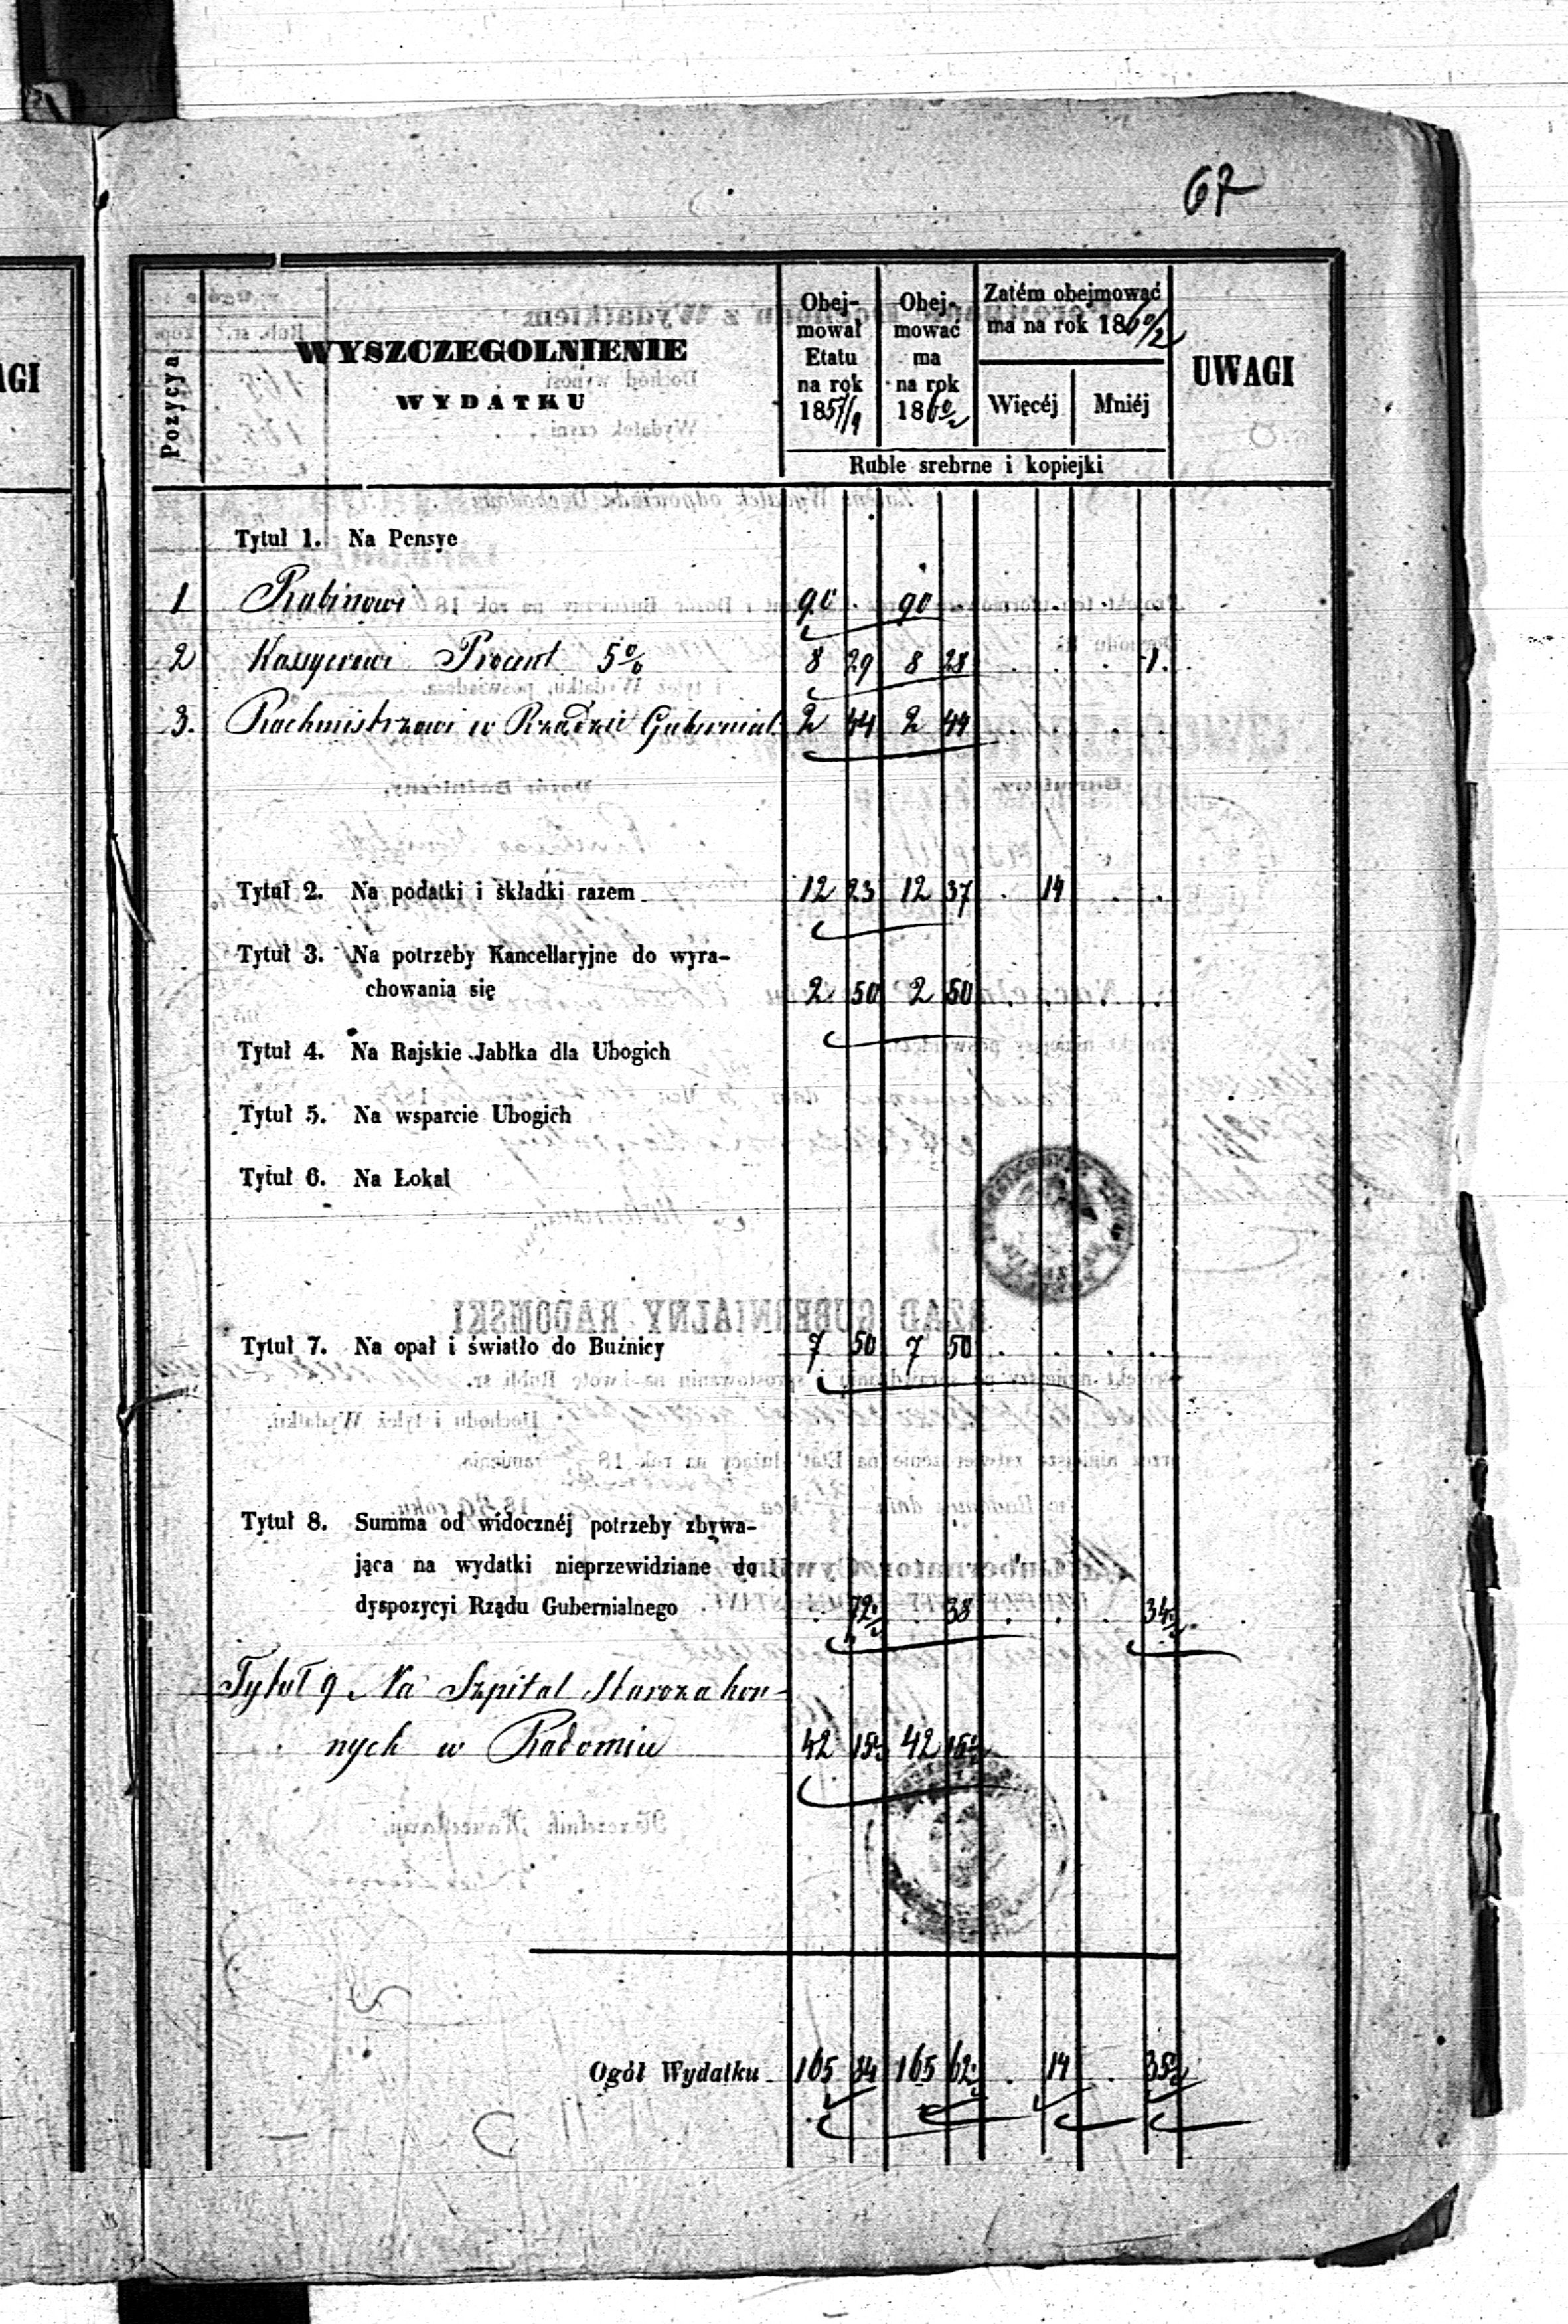 67
AGI
Pozycya
WYSZCZEGOLNIENIE
WYDATKU
Obej-
mował
Etatu
na rok
1857/9
Obej-
mować
ma
na rok
1860/2
Zatém obejmować
ma na rok 1860/2
Więcéj
Mniéj
UWAGI
Ruble srebrne i kopiejki
Tytuł 1. Na Pensye
1 Rabinowi 90 . 90 . . . . .
2 Kassyerowi Procent 5% 8 29 8 28 . . . 1.
3. Rachmistrzowi w Rządzie Gubernial. 2 44 2 44 . . . .
Tytuł 2. Na podatki i składki razem 12 23 12 37 . 14 . .
Tytuł 3. Na potrzeby Kancellaryjne do wyra-
chowania się 2 50 2 50 . . . .
Tytuł 4. Na Rajskie Jabłka dla Ubogich
Tytuł 5. Na wsparcie Ubogich
Tytuł 6. Na Łokal
RZĄD GUBERNIALNY RADOMSKI
Tytuł 7. Na opał i światło do Buźnicy 7 50 7 50 . . . .
Tytuł 8. Summa od widocznéj potrzeby zbywa-
jąca na wydatki nieprzewidziane do
dyspozycyi Rządu Gubernialnego . 72½ . 38 . . . 34½
Tytuł 9 Na Szpital Starozakon-
nych w Radomiu 42 15½ 42 15½
Ogół Wydatku 165 84 165 62½ . 14 . 35½